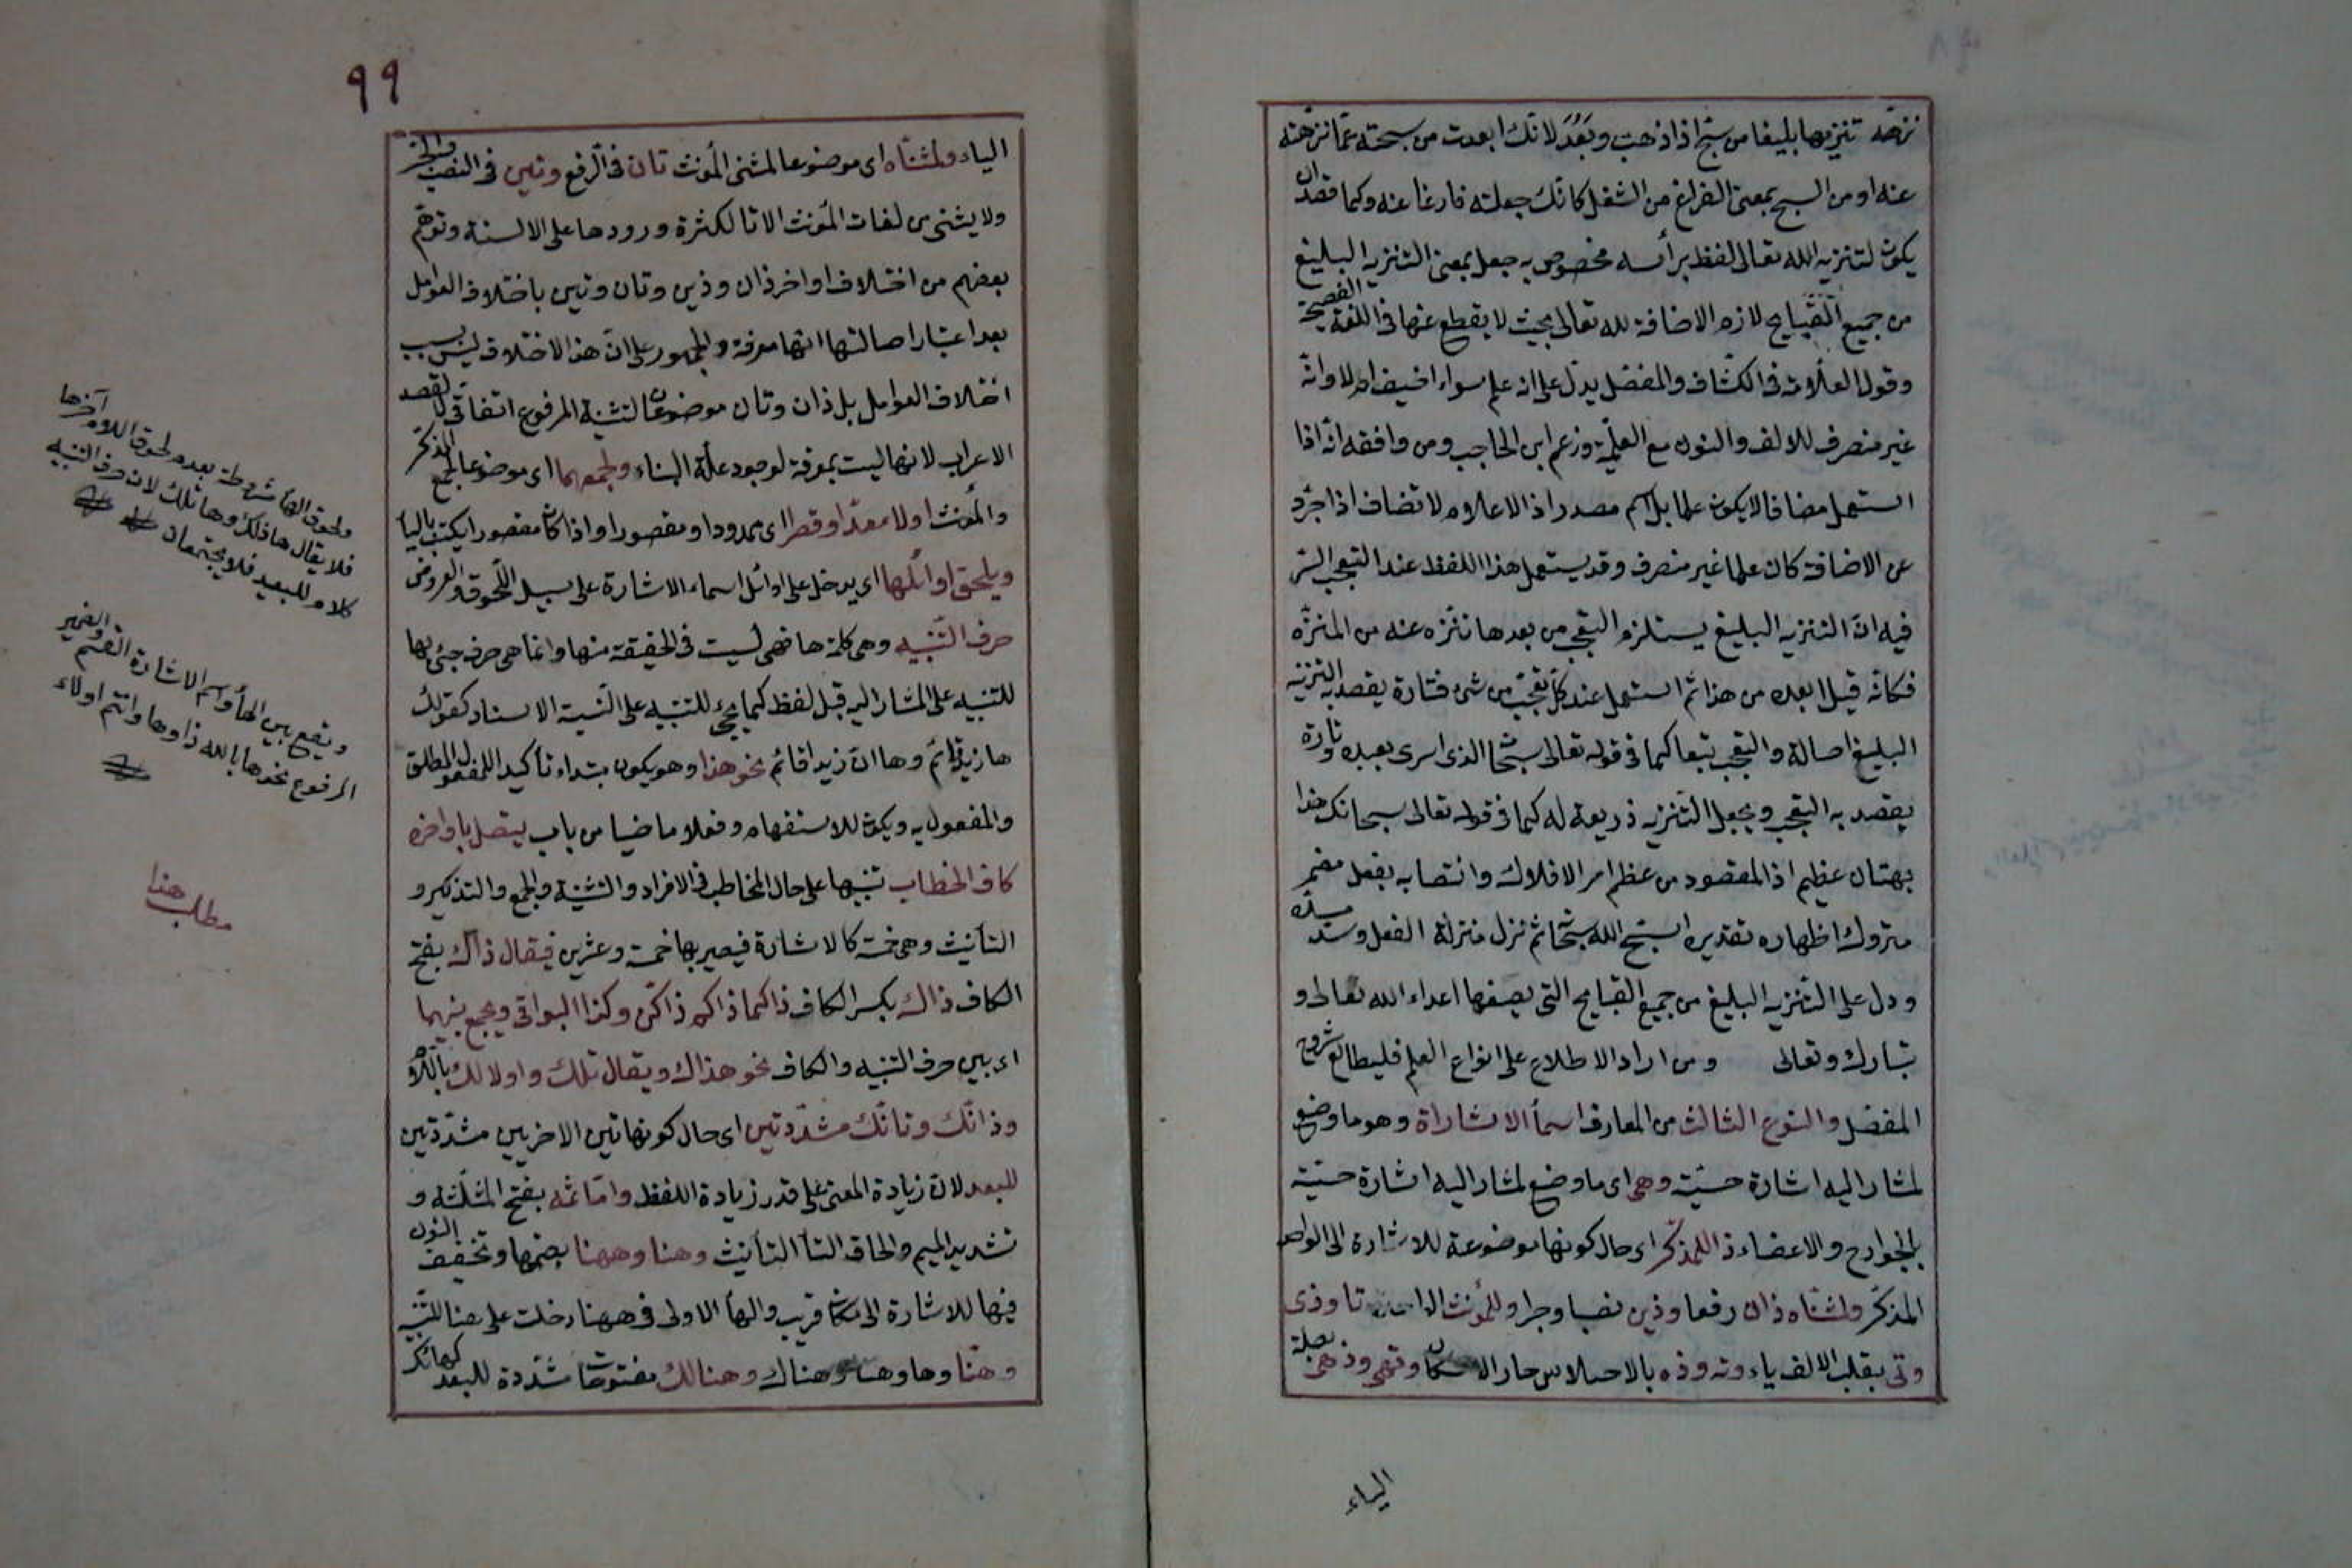 نزهه تنزيها بليغا من سبح اذا ذهب وبعد لانك ابعدت من سبحته عما نزهته
عنه او من السبح بمعنى الفراغ من الشغل كانك جعلته فارغا عنه وكما قصد ان
يكون لتنزيه الله تعالى لفظ برأسه مخصوص به جعل بمعنى التنزيه البليغ
من جميع القبايح لازم الاضافة لله تعالى بحيث لا يقطع عنها فى اللغة الفصيحة
وقول العلامة فى الكشاف والمفصل يدل على انه علم سواء اضيف ام لا وانه
غير منصرف للالف والنون مع العلمية وزعم ابن الحاجب ومن وافقه انه اذا
استعمل مضافا لا يكون علما بل اسم مصدر اذ الاعلام لا تضاف اذا جرد
عن الاضافة كان علما غير منصرف وقد يستعمل هذا اللفظ عند التعجب السر
فيه ان التنزيه البليغ يستلزم التعجب من بعد ما نزه عنه من المنزه
فكانه قيل ما ابعده من هذا ثم استعمل عند كل تعجب من شئ فتارة يقصد به التنزيه
البليغ اصالة والتعجب تبعا كما فى قوله تعالى سبحا الذى اسرى بعبده وتارة
يقصد به التعجب ويجعل التنزيه ذريعة له كما فى قوله تعالى سبحانك هذا
بهتان عظيم اذ المقصود من عظم امر الافلاك وانتصابه بفعل مضمر
متروك اظهاره تقديره اسبح الله سبحانا ثم نزل منزلة الفعل وسد مسده
ودل على التنزيه البليغ من جميع القبايح التى يصفها اعداء الله تعالى و
تبارك وتعالى ومن اراد الاطلاع على انواع العلم فليطالع شروح
المفصل والنوع الثالث من المعارف اسمأ الاشاراة وهو ما وضع
لمشار اليه اشارة حسية وهى اى ما وضع لمشار اليه اشارة حسية
بالجوارح والاعضاء ذا للمذكر اى حال كونها موضوعة للاشارة الى الواحد
المذكر ولمثناه ذان رفعا وذين نصبا وجرا وللمؤنث تا وذى
وتى بقلب الالف ياء وته وذه وتهى وذهى بصلة
الياء
٩٩
الياء ولمثناه اى موضوعا لمثنى المؤنث تان فى الرفع وتين فى النصب والجر
ولا يثنى من لغات المؤنث الا تا لكثرة ورودها على الالسنة وتوهم
بعضهم من اختلاف اواخر ذان وذين وتان وتين باختلاف العوامل
بعد اعتبار اصالتها انها معرفة والجمهور على ان هذا الاختلاف ليس بسبب
اختلاف العوامل بل ذان وتان موضوعان لتثنية المرفوع اتفاقى لا لقصد
الاعراب لانها ليست بمعرفة لوجود علة البناء ولجمعهما اى موضوعا لجمع المذكر
والمؤنث اولا مدا وقصرا اى ممدودا ومقصورا واذا كان مقصورا يكتب باليأ
ويلحق اوائلها اى يدخل على اوائل اسماء الاشارة على سبيل اللحوق والعروض
حرف التنبيه وهى كلمة ها فهى ليست فى الحقيقة منها وانما هى حرف جئ بها
للتنبيه على المشار اليه قبل لفظ كما يجئ للتنبيه على النسبة الاسناد كقولك
ها زيد قائم وها ان زيدا قائم نحو هذا وهو يكون مبتداء تأكيدا للمفعول المطلق
والمفعول به ويكون للاستفهام وفعلا ماضيا من باب يتصل باواخره
كاف الخطاب تنبيها على حال المخاطب فى الافراد والتثنية والجمع والتذكير و
التأنيث وهى خمسة كالاشارة فيصير بها خمسة وعشرين فيقال ذاك بفتح
الكاف ذاك بكسر الكاف ذاكما ذاكم ذاكن وكذا البواقى ويجمع بينهما
اى بين حرف التنبيه والكاف نحو هذاك ويقال تلك واولالك باللام
وذانك وتانك مشددتين اى حال كونها تين الاخريين مشددتين
للبعد لان زيادة المعنى على قدر زيادة اللفظ واما ثمه بفتح المثلثة و
تشديد الميم والحاق التأ التأنيث وهنا وههنا بضمها وتخفيف النون
فيها للاشارة الى مكان قريب والهأ الاولى فى ههنا دخلت على هنا للتنبيه
وهنا وها وهنا وهناك وهنالك مفتوحات مشددة للبعد
ولحوق الهأ شروطة بعدم لحوق اللام آخرها
فلا يقال هاذلك وهاتلك لان حرف التنبيه
كلام للبعيد فلا يجتمعان
ويقع بين الهأ واسم الاشارة القسم والضمير
المرفوع نحوها بالله ذا وها وانتم اولاء
مطلب هذا